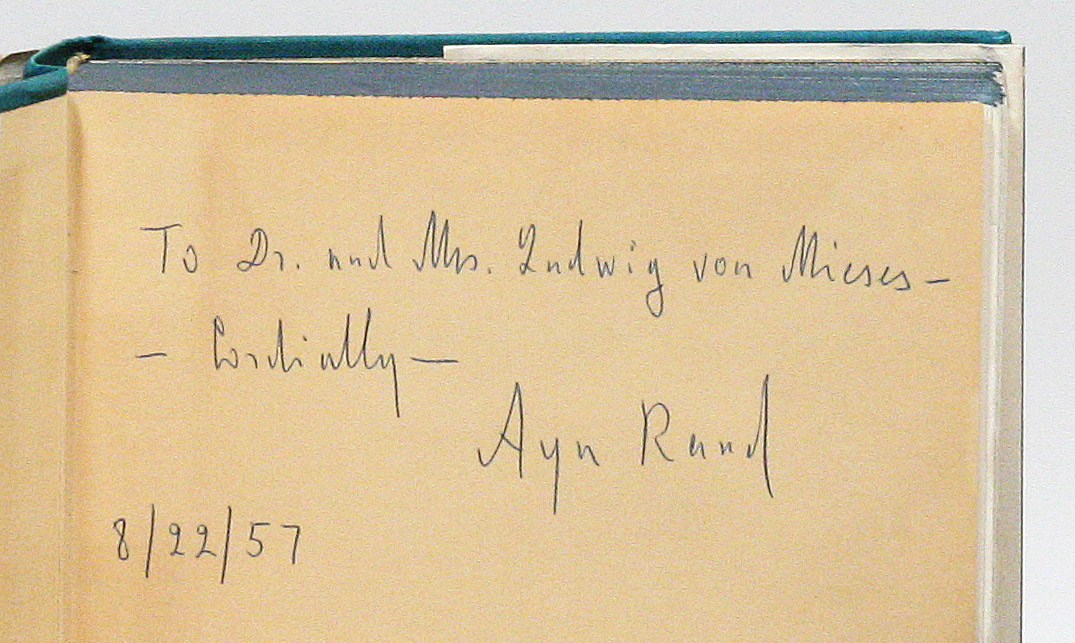 To Dr. and Mrs. Ludwig von Mieses –
– Cordially –
Ayn Rand
8/22/57